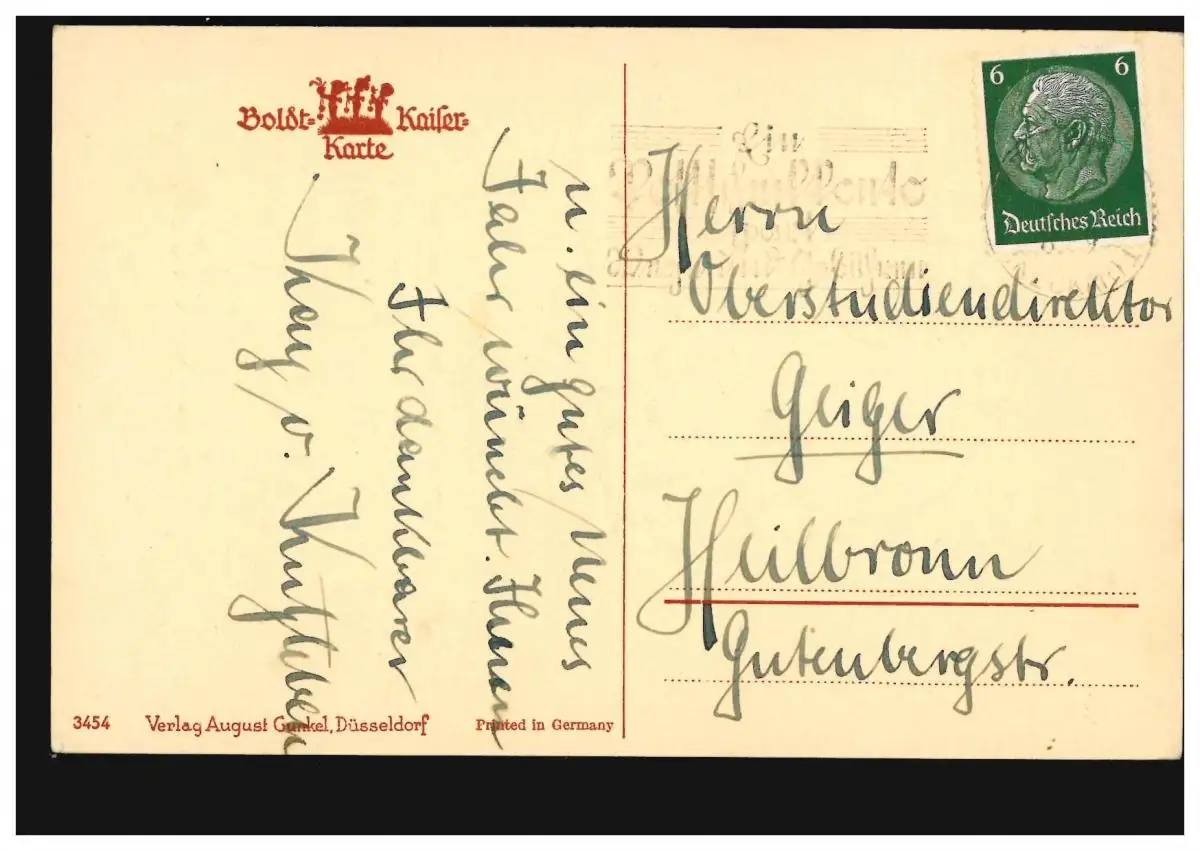 Boldt- Kaiser-
Karte
u. ein gutes Neues
Jahr wünscht Ihnen
Ihr dankbarer
v.
Ein
Postscheckkonto
6 6
Deutsches Reich
Herrn
Oberstudiendirektor
Geiger
Heilbronn
Gutenbergstr.
3454 Verlag August Gunkel, Düsseldorf Printed in Germany